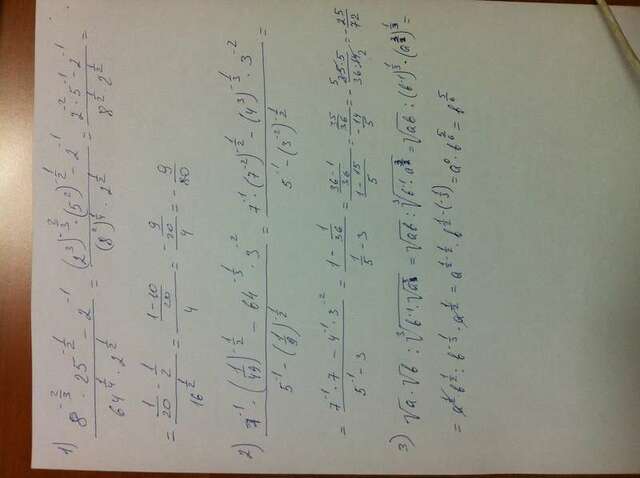 1) (8^{-2/3} · 25^{-1/2} - 2^{-1}) / (64^{1/4} · 2^{1/2}) = ((2^3)^{-2/3} · (5^2)^{-1/2} - 2^{-1}) / ((8^2)^{1/4} · 2^{1/2}) = (2^{-2} · 5^{-1} - 2^{-1}) / (8^{1/2} · 2^{1/2}) =
= (1/20 - 1/2) / 16^{1/2} = ((1-10)/20) / 4 = (-9/20) / 4 = - 9/80
2) (7^{-1} · (1/49)^{-1/2} - 64^{-1/3} · 3^{-2}) / (5^{-1} - (1/9)^{-1/2}) = (7^{-1} · (7^{-2})^{-1/2} - (4^3)^{-1/3} · 3^{-2}) / (5^{-1} - (3^{-2})^{-1/2}) =
= (7^{-1} · 7 - 4^{-1} · 3^{-2}) / (5^{-1} - 3) = (1 - 1/36) / (1/5 - 3) = ((36-1)/36) / ((1-15)/5) = (35/36) / (-14/5) = - (35·5)/(36·14) = - 25/72
3) √a · √b : ∛(b^{-1} · √a^3) = √ab : ∛(b^{-1} · a^{3/2}) = √ab : (b^{-1})^{1/3} · (a^{3/2})^{1/3} =
= a^{1/2} b^{1/2} : b^{-1/3} · a^{1/2} = a^{1/2 - 1/2} · b^{1/2 - (-1/3)} = a^0 · b^{5/6} = b^{5/6}